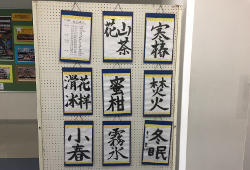 寒椿
山茶
花
焚火
蜜柑
花样
滑冰
冬眠
霧氷
小春